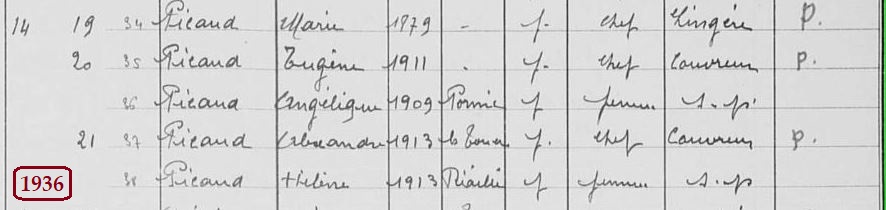 14 19 34 Picaud Marie 1879 - f. chef Lingère P.
20 35 Picaud Eugène 1911 . f. chef Couvreur P.
36 Picaud Angélique 1909 Pornic f femme s.p.
21 37 Picaud Alexandre 1913 f. chef Couvreur P.
1936 38 Picaud Hélène 1913 f femme s.p